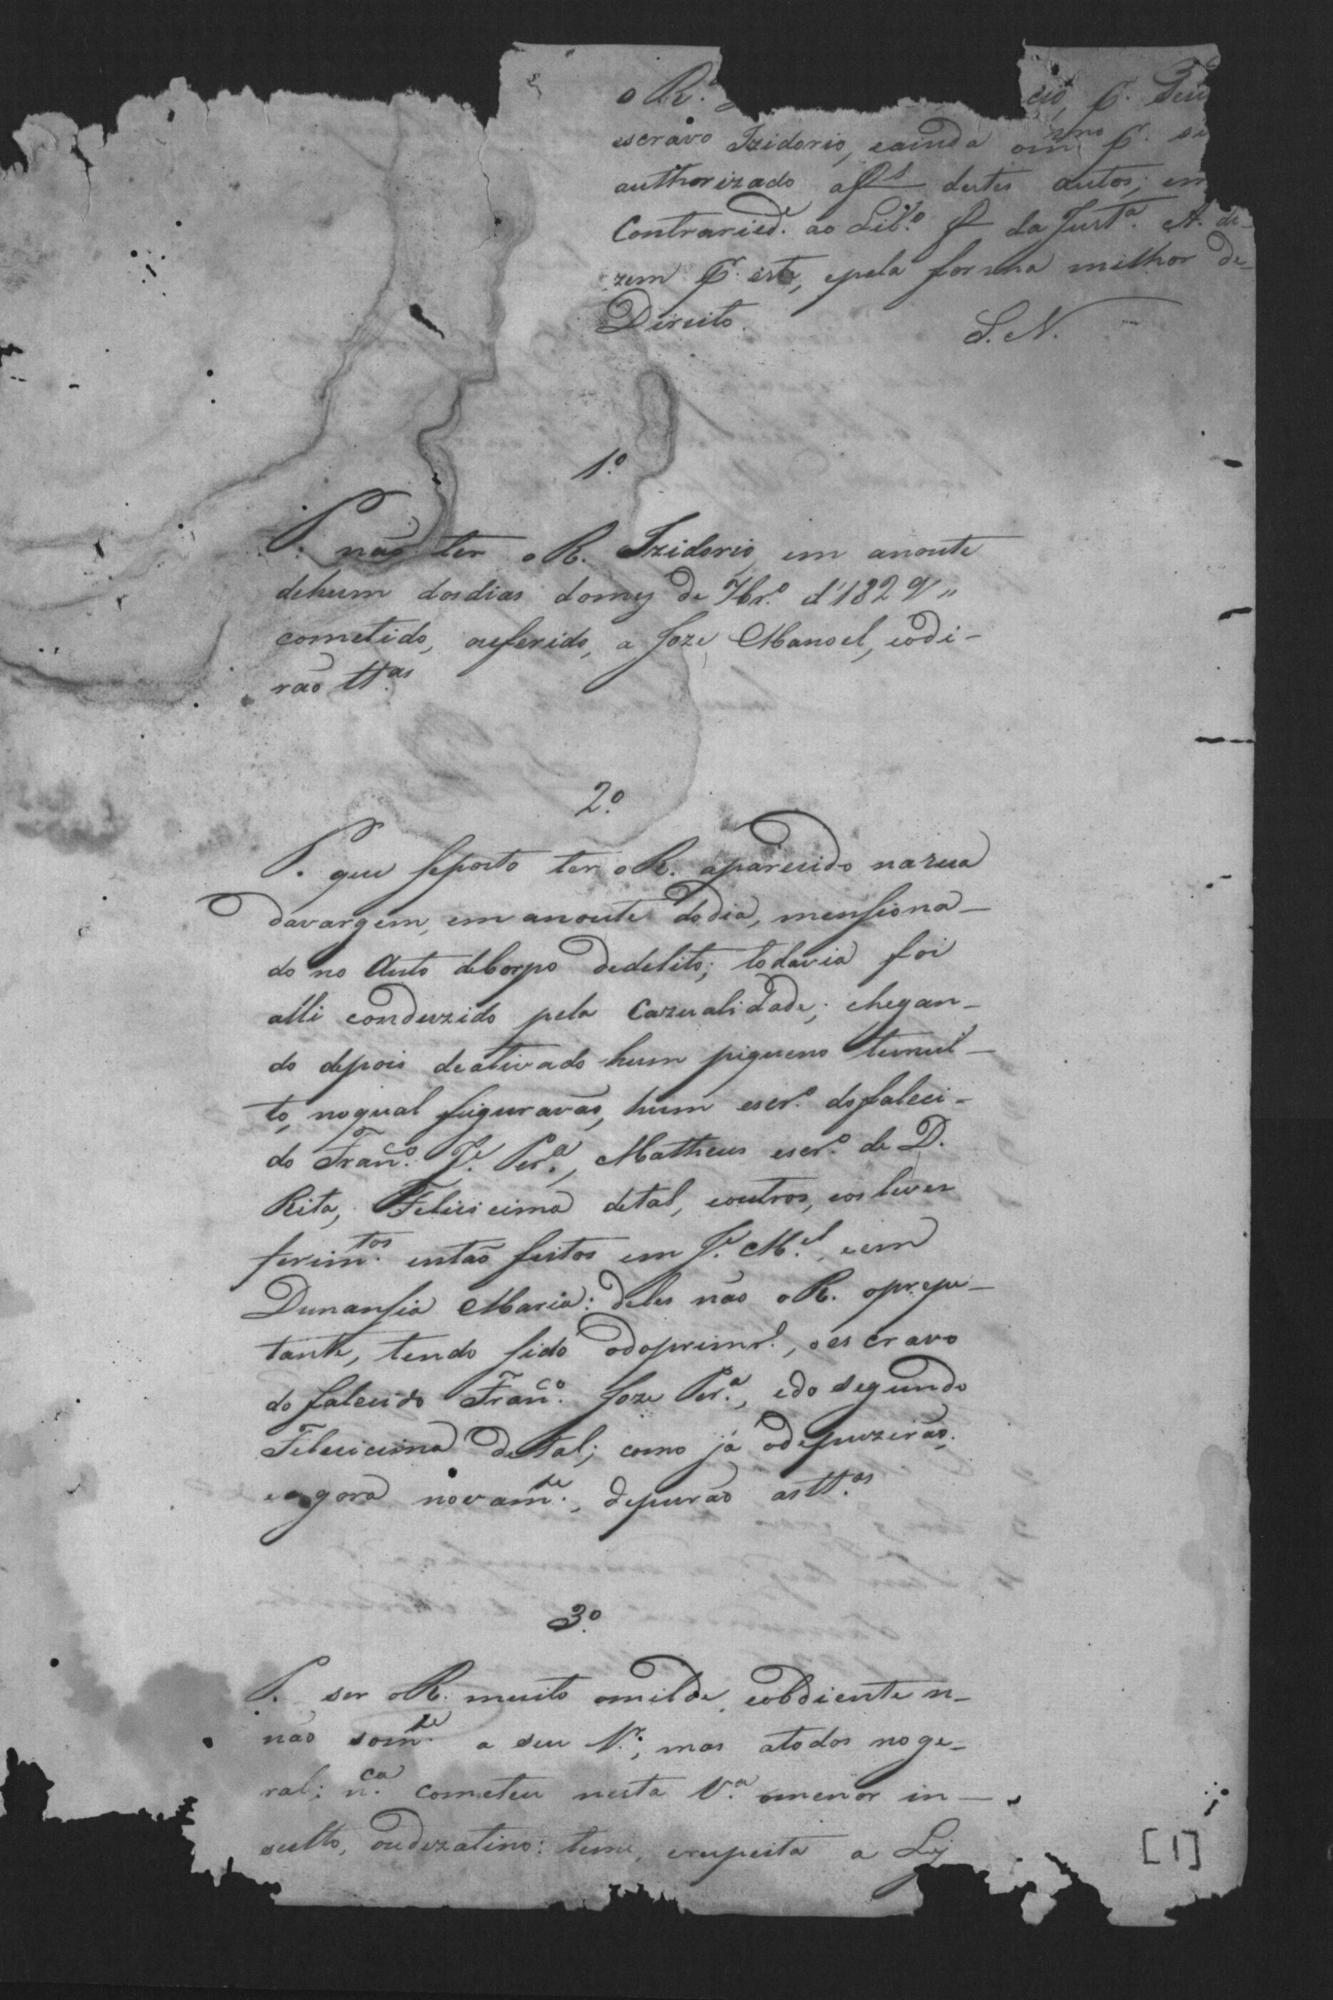 o R.º cio, p. seu
escravo Izidorio, e ainda o mmo p. si
authorizado a fls destes autos; em
Contraried.e ao Lib.º da Just.ª A. di-
zem p. este, e pela forma milhor de
Direito.
S. N.
1.º
P. não ter o R. Izidorio, em anoute
dehum dosdias domez de 7br.º d'1829,,
cometido, oreferido, a Joze Manoel, eodi-
rão tt.as
2.º
P. que seposto ter o R. aparecido narua
davargem, em anoute dodia, mensiona-
do no Auto deCorpo dedelito; todavia foi
alli conduzido pela Cazualidade; chegan-
do depois deativado hum piqueno tumul-
to, noqual figuravão, hum escr.º dofaleci-
do Fran.co J.e Per.ª, Matheus escr.º de D.
Rita, Felicicima detal, eoutros, eos leves
ferim.tos então feitos em J.e M.el, eem
Dunansia Maria: deles não o R. oprepe-
tante, tendo sido odoprimr.º, oescravo
do falecido Fran.co Joze Per.ª, edo segundo
Felicicima detal; como já odepuzerão,
eagora novam.te, depurão astt.as
3.º
P. ser o R. muito omilde, eobdiente n-
não som.te a seu Sr.; mas atodos noge-
ral; n.ca cometeu nesta V.ª omenor in-
sulto, oudezatino: teme, erespeita a Ley
[1]